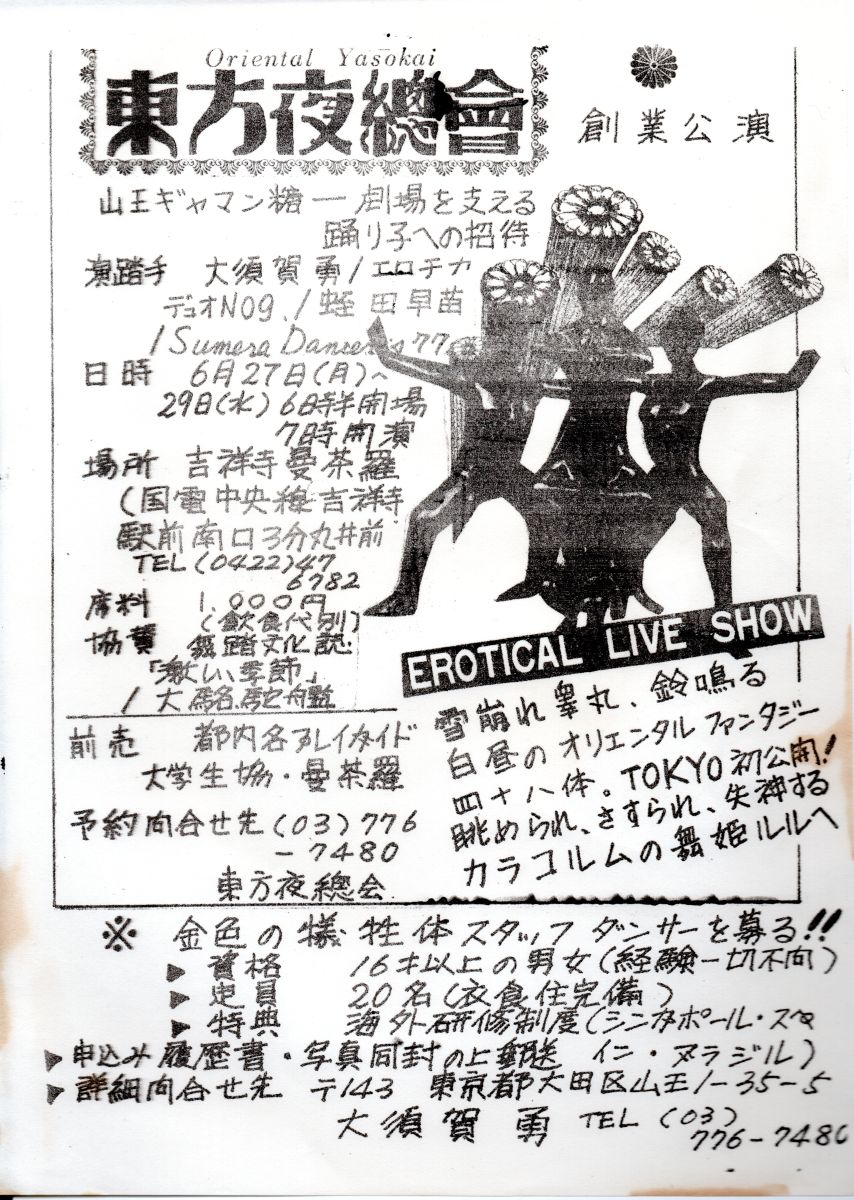 Oriental Yasokai
東方夜總會
創業公演
山王ギャマン糖―劇場を支える
踊り子への招待
演踏手 大須賀勇/エロチカ
デュオNO9./蛭田早苗
/Sumera Dancers 77
日時 6月27日(月)〜
29日(水) 6時半開場
7時開演
場所 吉祥寺曼荼羅
(国電中央線吉祥寺
駅前南口3分丸井前
TEL (0422)47
6782
席料 1,000円
(飲食代別)
協賛 舞踏文化誌
「激しい季節」
/大駱駝艦
EROTICAL LIVE SHOW
雪崩れ睾丸、鈴鳴る
白昼のオリエンタルファンタジー
四十八体。TOKYO初公開!
眺められ、さすられ、失神する
カラコルムの舞姫ルルへ
前売 都内各プレイガイド
大学生協・曼荼羅
予約問合せ先 (03) 776
-7480
東方夜總会
※ 金色の犠牲体スタッフダンサーを募る!!
▶ 資格 16才以上の男女(経験一切不問)
▶ 定員 20名(衣食住完備)
▶ 特典 海外研修制度(シンガポール・スペ
イン・ブラジル)
▶ 申込み 履歴書・写真同封の上郵送
▶ 詳細問合せ先 〒143 東京都大田区山王1-35-5
大須賀 勇 TEL (03)
776-7480